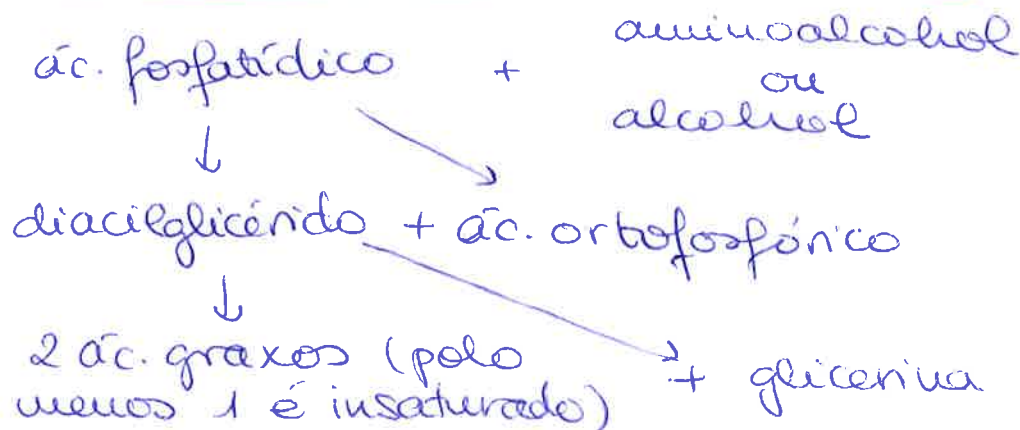 ác. fosfatídico + aminoalcohol
ou
alcohol
↓
diacilglicérido + ác. ortofosfórico
↓
2 ác. graxos (polo + glicerina
menos 1 é insaturado)